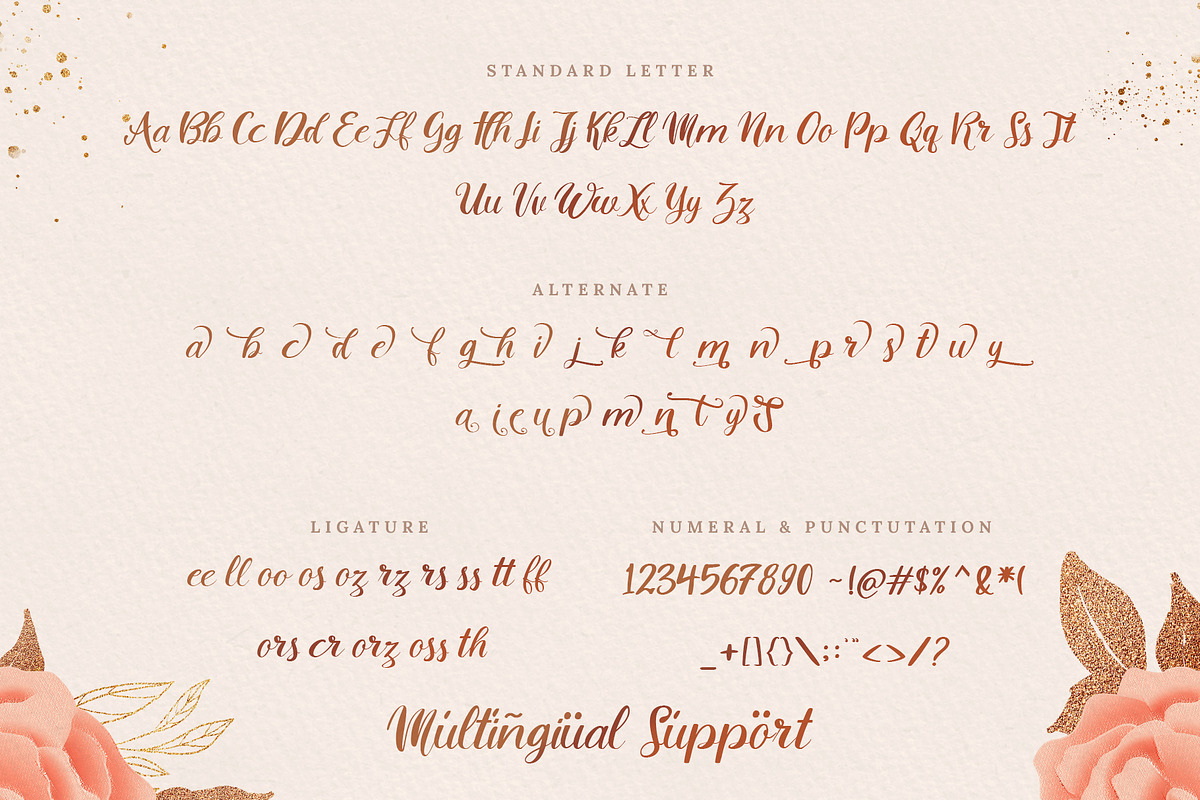 STANDARD LETTER
Aa Bb Cc Dd Ee Ff Gg Hh Ii Jj Kk Ll Mm Nn Oo Pp Qq Rr Ss Tt
Uu Vv Ww Xx Yy Zz
ALTERNATE
a b c d e f g h i j k l m n p r s t w y
a i e u p m n t y S
LIGATURE
ee ll oo os oz rz rs ss tt ff
ors cr orz oss th
NUMERAL & PUNCTUTATION
1234567890 ~!@#$%^&*(
_+[]{}\;:'"<>/?
Múltíñgiüal Súppört